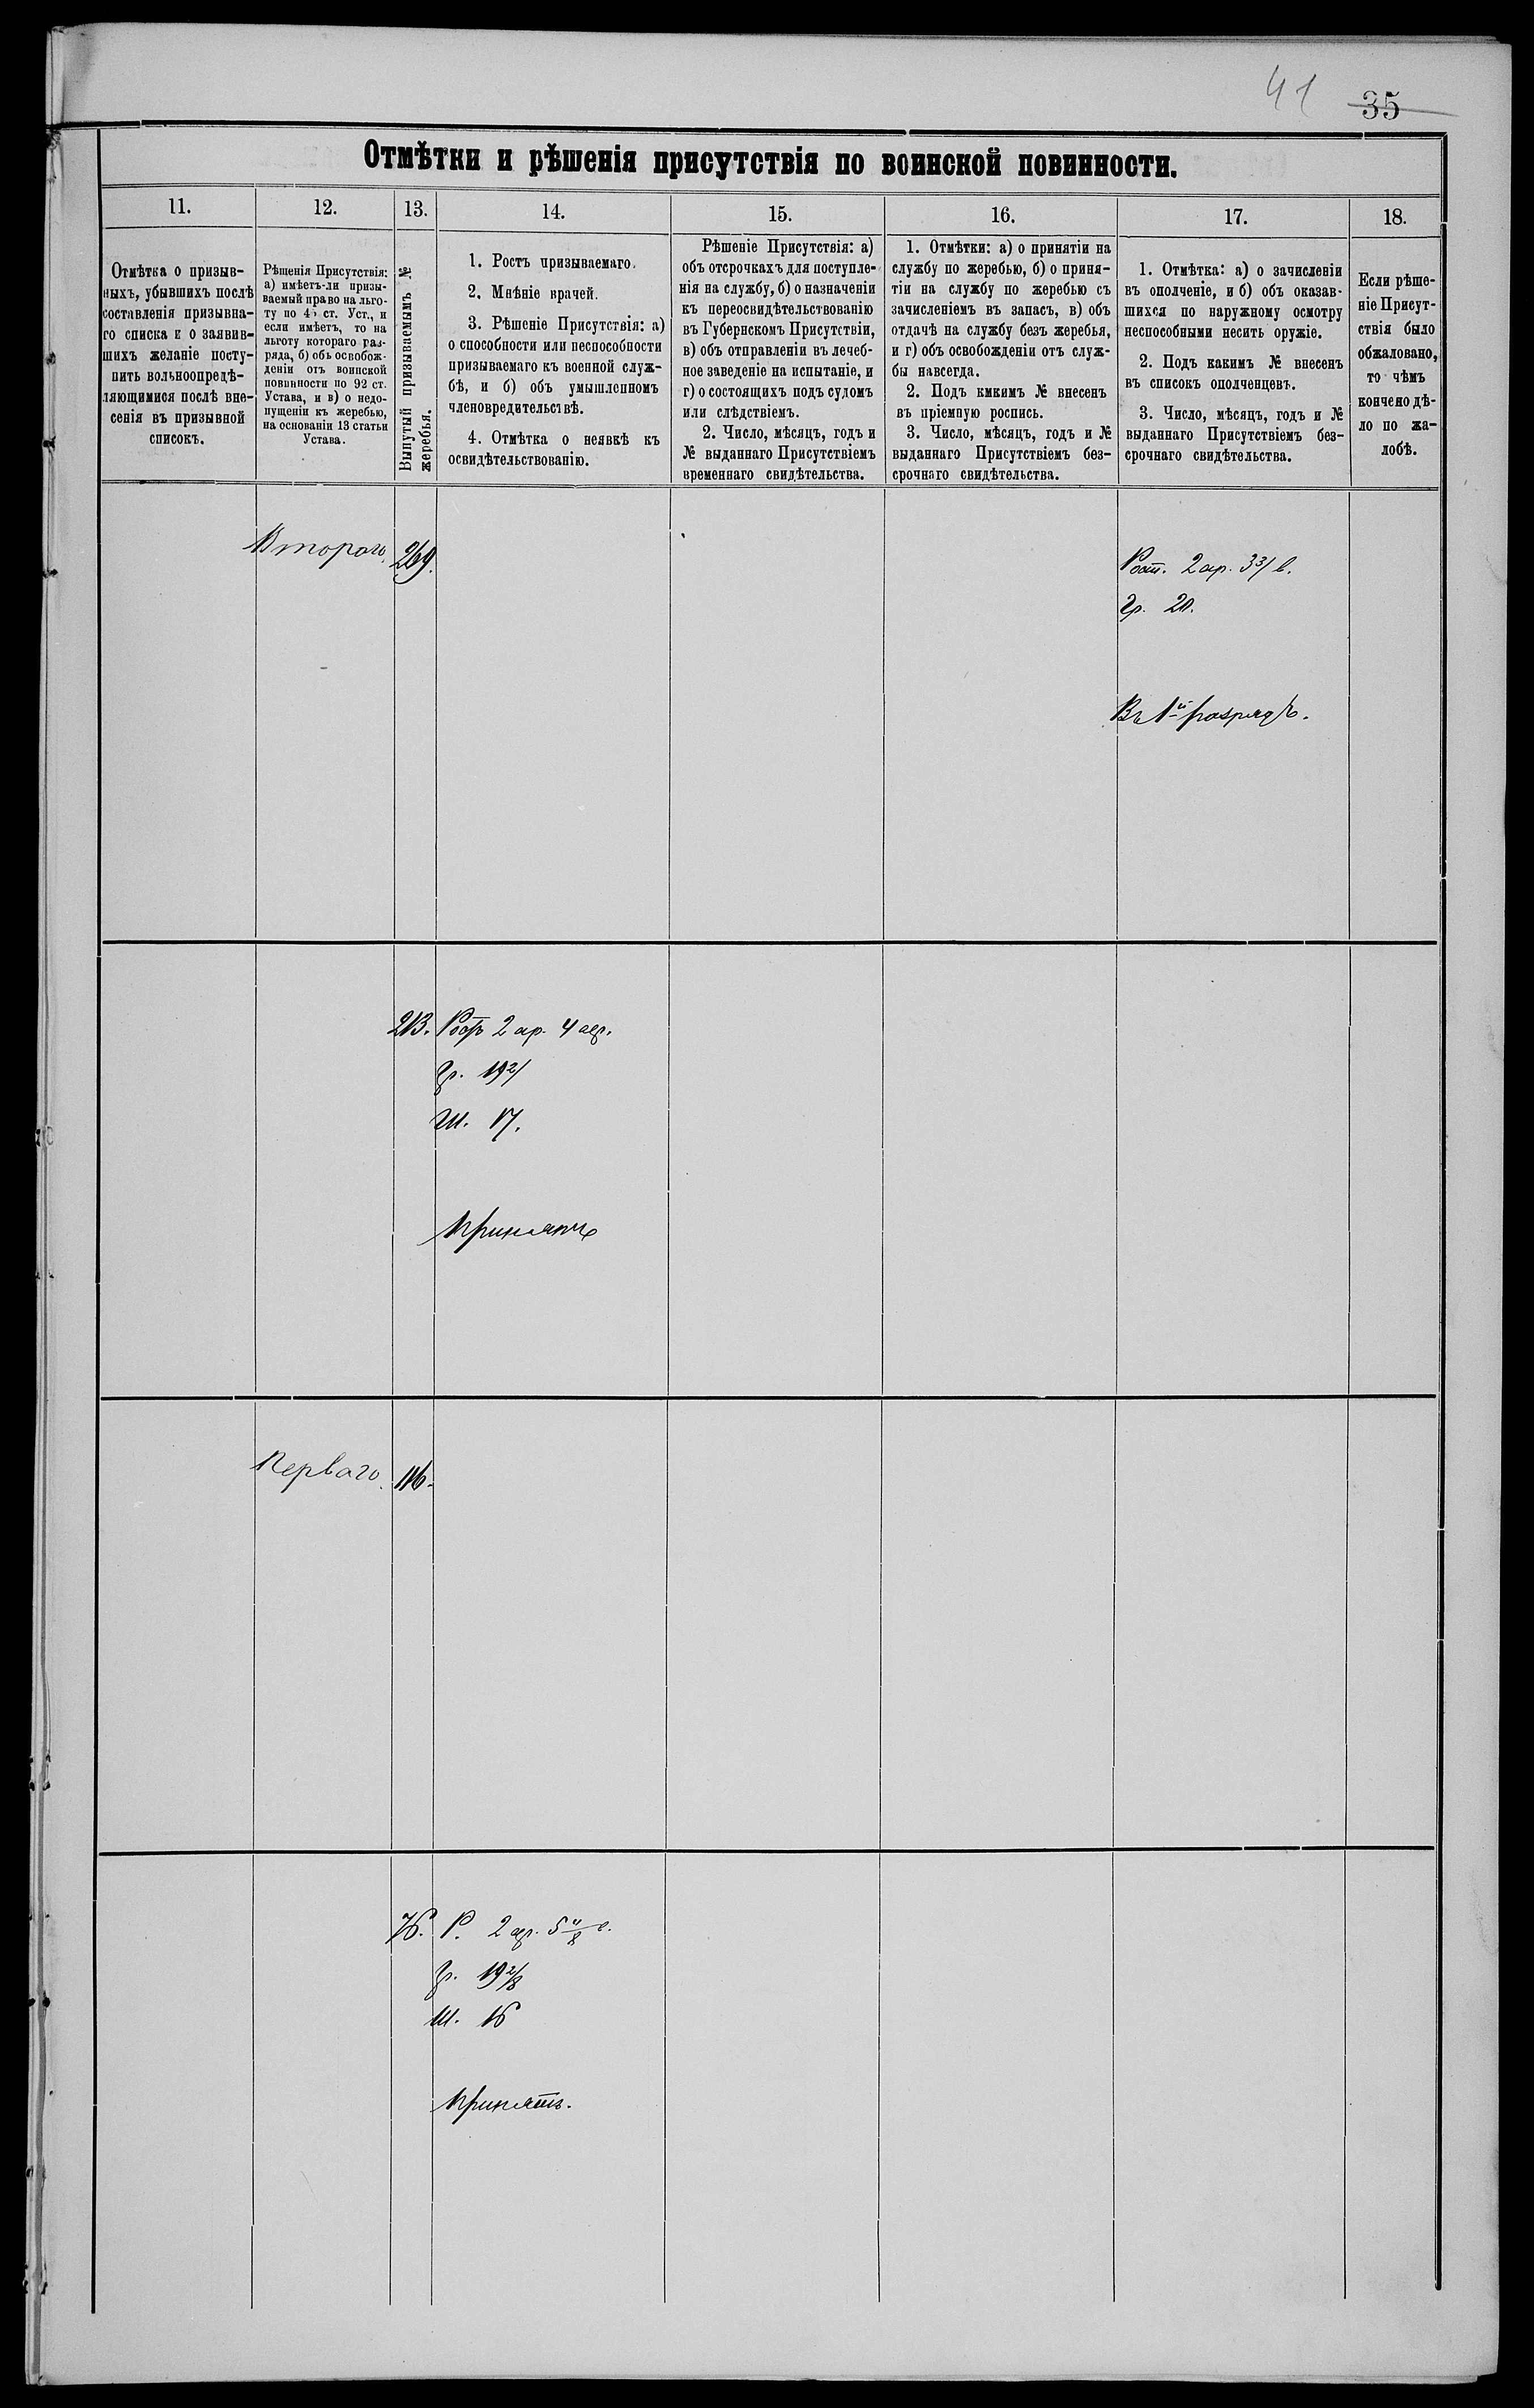 41 35
Отмѣтки и рѣшенія присутствія по воинской повинности.
11.
12.
13.
14.
15.
16.
17.
18.
Отмѣтка о призыв-
ныхъ, убывшихъ послѣ
составленія призывна-
го списка и о заявив-
шихъ желаніе посту-
пить вольноопредѣ-
ляющимися послѣ вне-
сенія въ призывной
списокъ.
Рѣшенія Присутствія:
а) имѣетъ-ли призы-
ваемый право на льго-
ту по 45 ст. Уст., и
если имѣетъ, то на
льготу котораго раз-
ряда, б) объ освобож-
деніи отъ воинской
повинности по 92 ст.
Устава, и в) о недо-
пущеніи къ жеребью,
на основаніи 13 статьи
Устава.
Вынутый призываемымъ №
жеребья.
1. Ростъ призываемаго.
2. Мнѣніе врачей.
3. Рѣшеніе Присутствія: а)
о способности или неспособности
призываемаго къ военной служ-
бѣ, и б) объ умышленномъ
членовредительствѣ.
4. Отмѣтка о неявкѣ къ
освидѣтельствованію.
Рѣшеніе Присутствія: а)
объ отсрочкахъ для поступле-
нія на службу, б) о назначеніи
къ переосвидѣтельствованію
въ Губернскомъ Присутствіи,
в) объ отправленіи въ лечеб-
ное заведеніе на испытаніе, и
г) о состоящихъ подъ судомъ
или слѣдствіемъ.
2. Число, мѣсяцъ, годъ и
№ выданнаго Присутствіемъ
временнаго свидѣтельства.
1. Отмѣтки: а) о принятіи на
службу по жеребью, б) о приня-
тіи на службу по жеребью съ
зачисленіемъ въ запасъ, в) объ
отдачѣ на службу безъ жеребья,
и г) объ освобожденіи отъ служ-
бы навсегда.
2. Подъ кмкимъ № внесенъ
въ пріемную роспись.
3. Число, мѣсяцъ, годъ и №
выданнаго Присутствіемъ без-
срочнаго свидѣтельства.
1. Отмѣтка: а) о зачисленіи
въ ополченіе, и б) объ оказав-
шихся по наружному осмотру
неспособными несить оружіе.
2. Подъ какимъ № внесенъ
въ списокъ ополченцевъ.
3. Число, мѣсяцъ, годъ и №
выданнаго Присутствіемъ без-
срочнаго свидѣтельства.
Если рѣше-
ніе Присут-
ствія было
обжаловано,
то чѣмъ
кончено дѣ-
ло по жа-
лобѣ.
Второго 269.
Рост. 2 ар. 3 3/ в.
Гр. 20.
Въ 1й разрядъ.
213. Ростъ 2 ар. 4
Гр. 19 2/
Ш. 17.
Принять
Перваго 116.
76. Р. 2 ар. 5 4/8 в.
Гр. 19 2/8
Ш. 16
Принять.